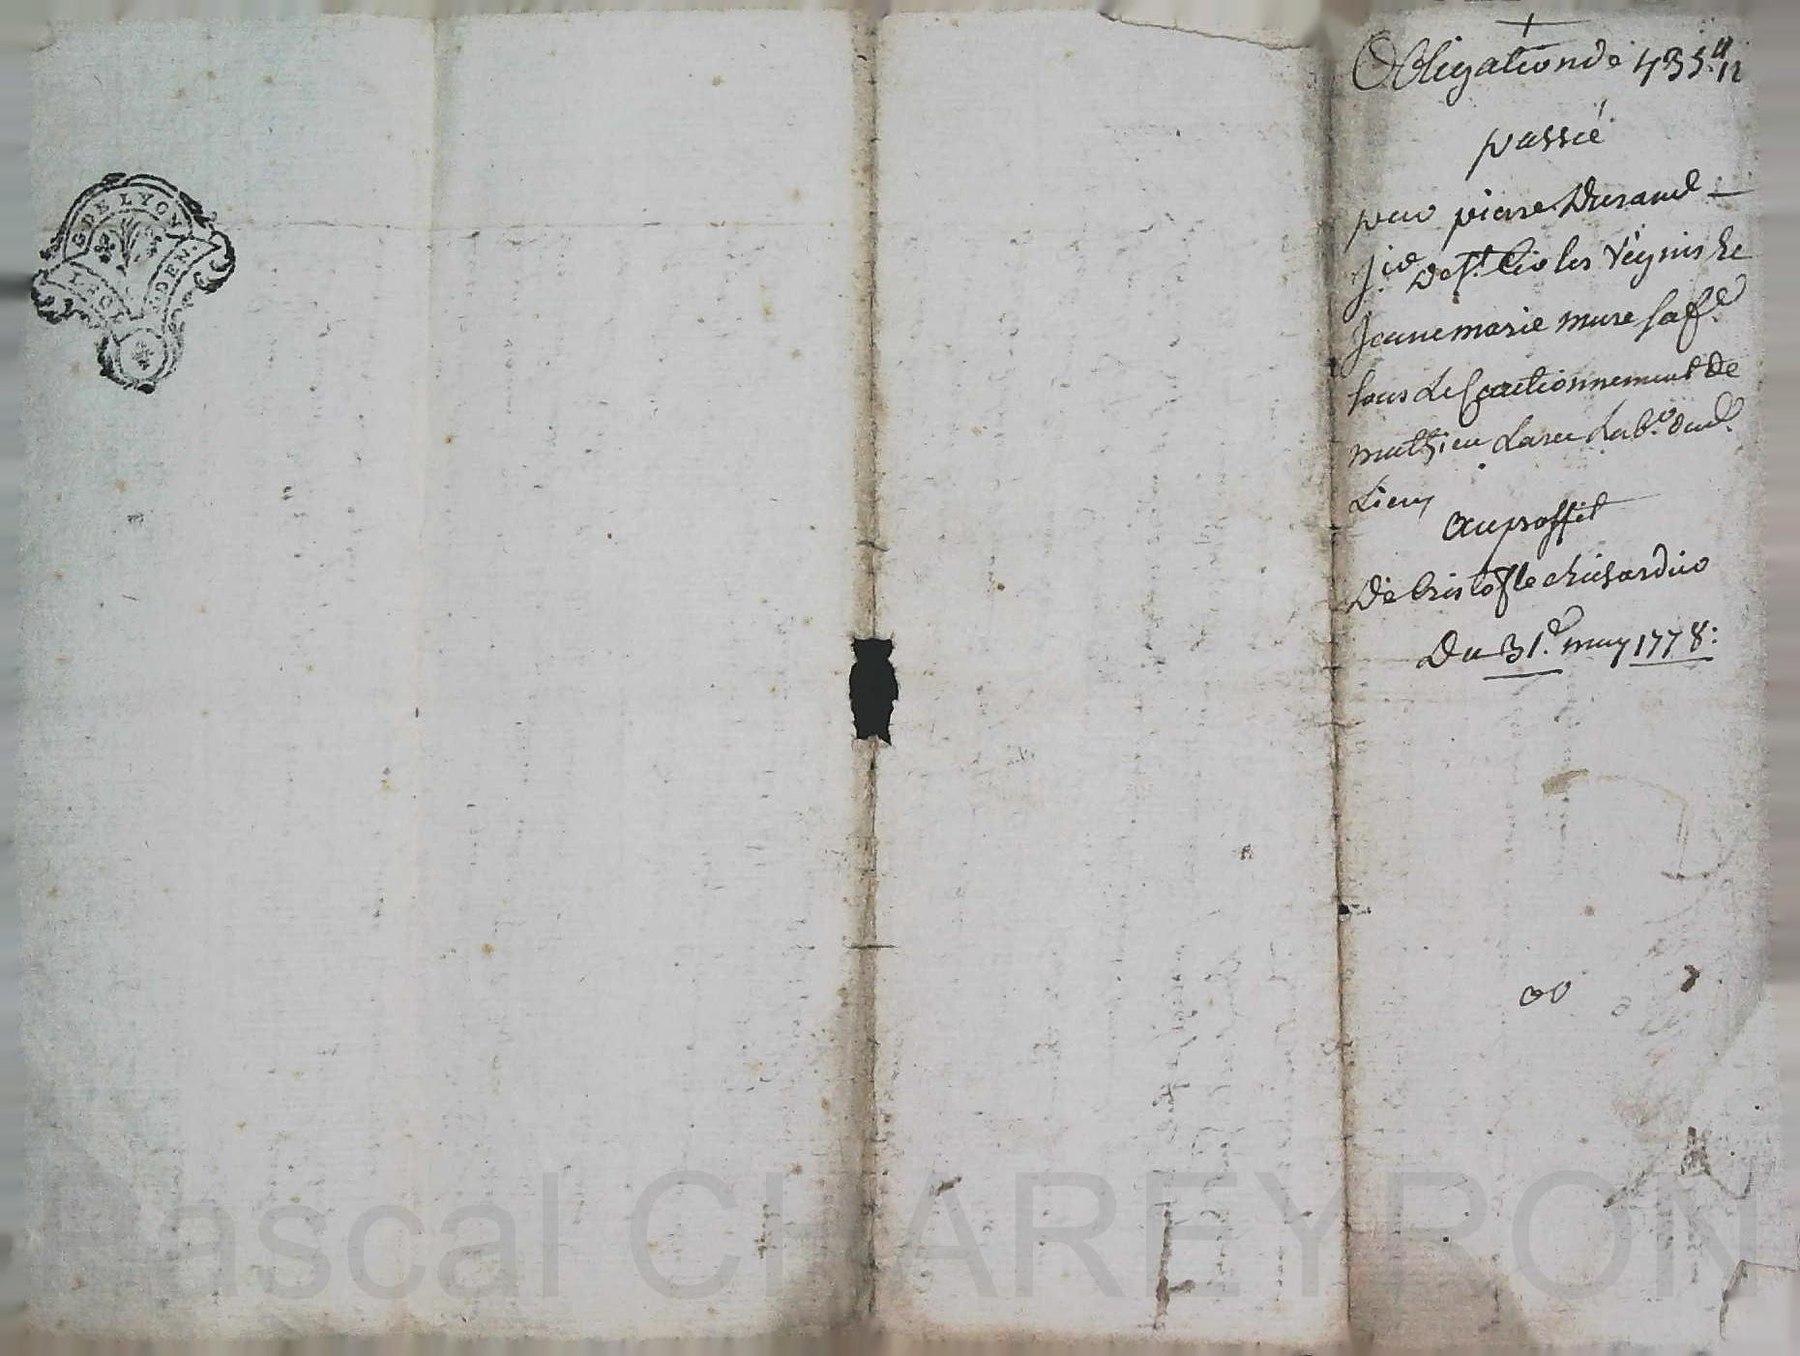 G. DE LYON
DEN.
Obligation de 435.ll 12
passée
par pierre Durand
De st.
Jeanne marie mure sa fe.
sous Le Cautionnement de
mathieu Labr. dud.
Lieu
Au proffit
De Cristofle
Du 31.e may 1778:
Pascal CHAREYRON